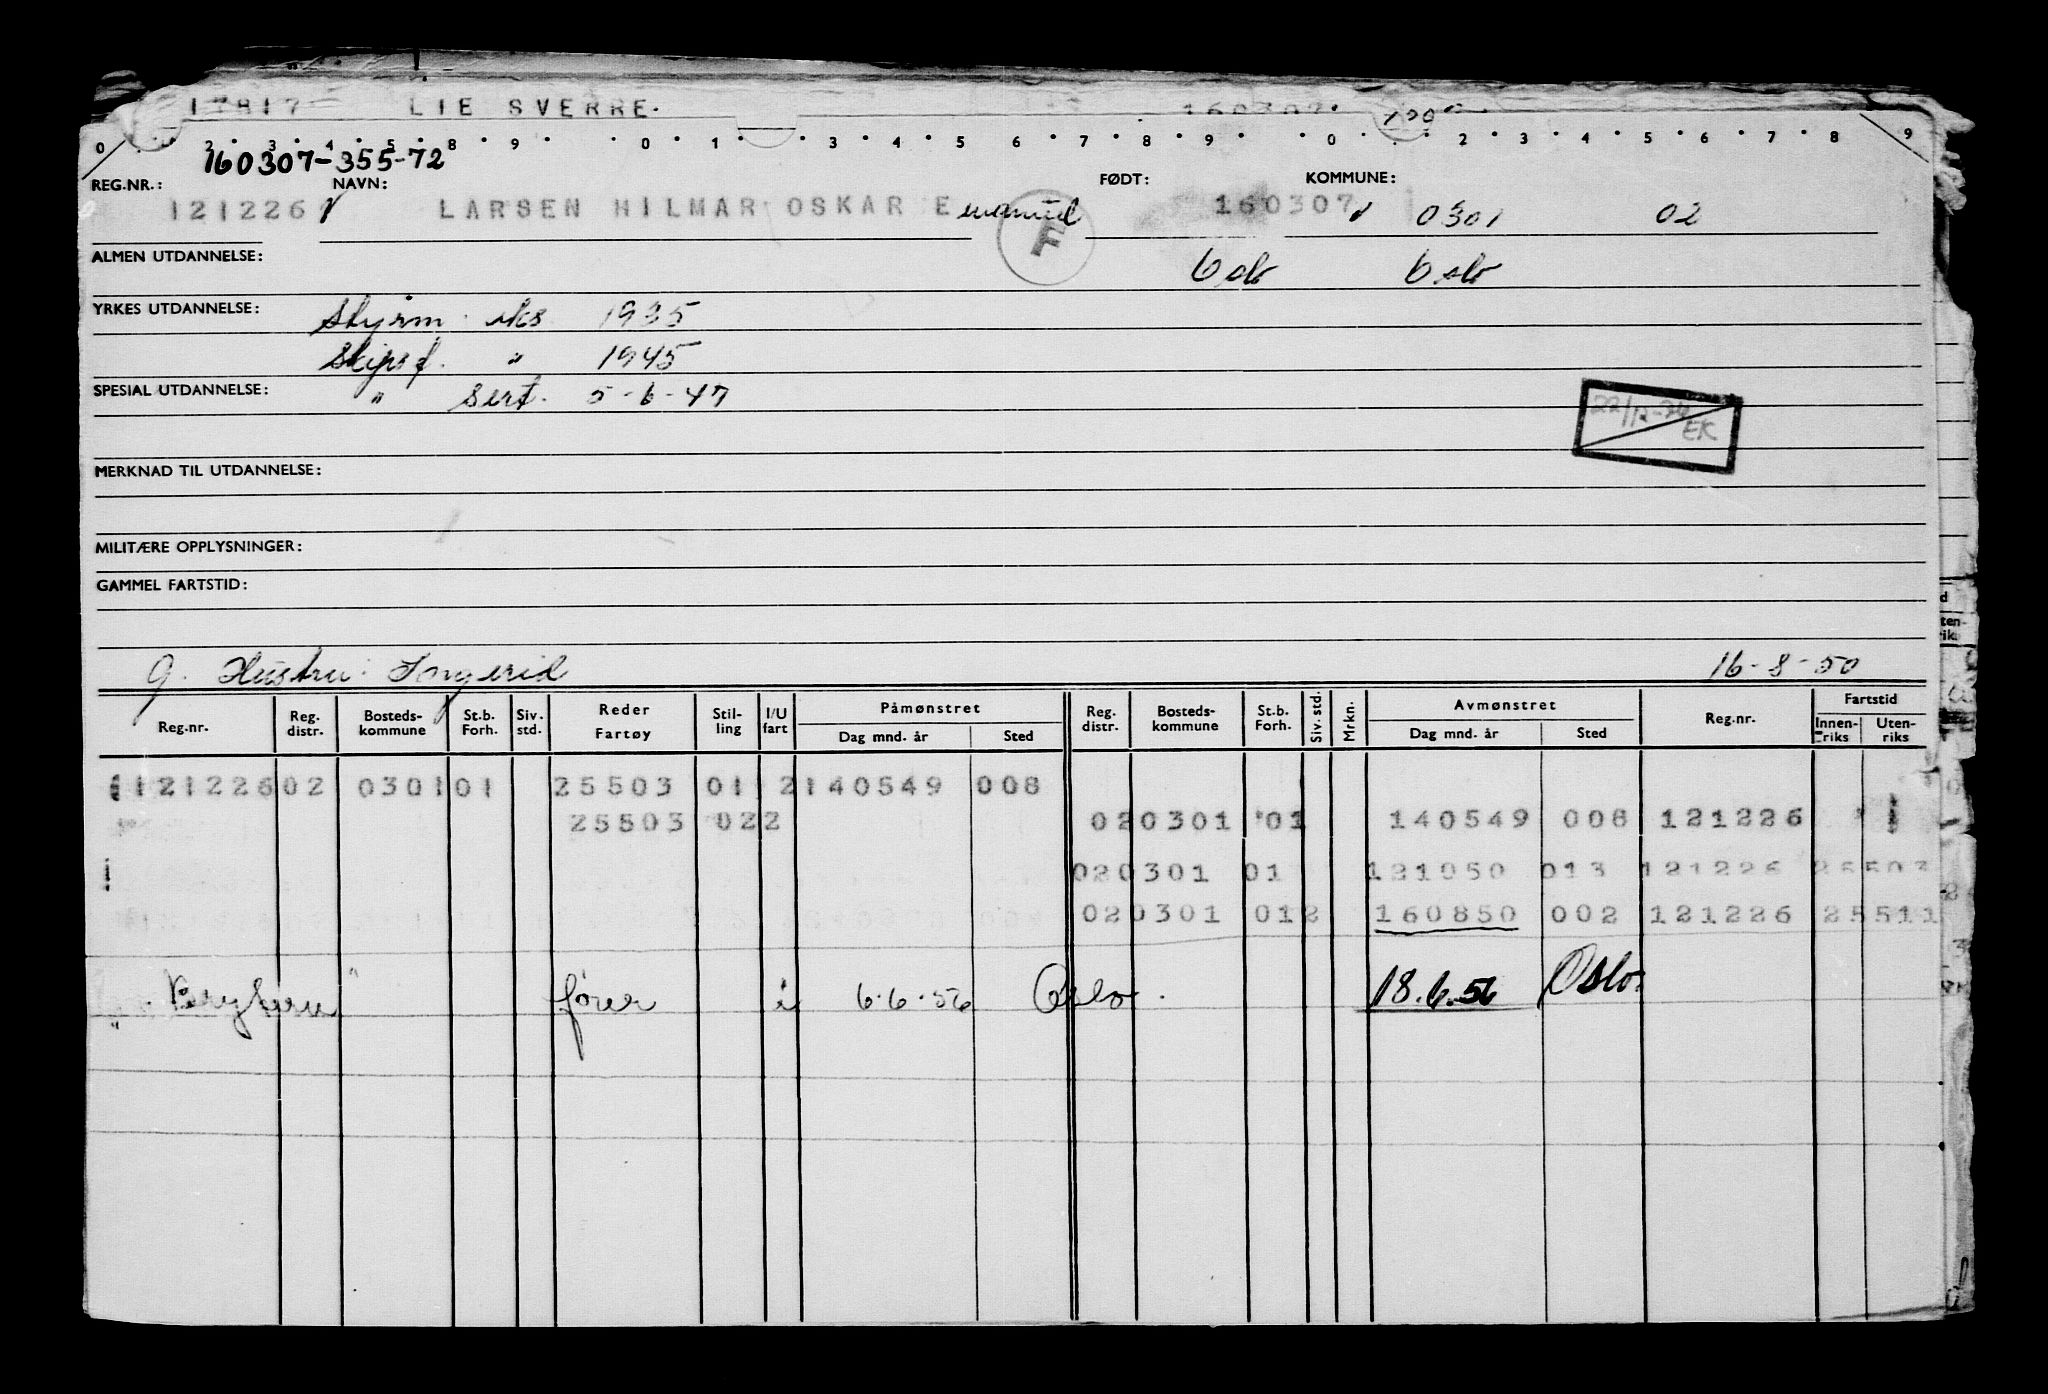 LIE SVERRE.
160307-355-72
REG.NR.: NAVN: FØDT: KOMMUNE:
121226 LARSEN HILMAR OSKAR Emanuel 160307 0301 02
F
ALMEN UTDANNELSE: Oslo Oslo
YRKES UTDANNELSE: Styrm. eks. 1935
Skipsf. " 1945
SPESIAL UTDANNELSE: " Sert. 5-6-47
22/12- EK
MERKNAD TIL UTDANNELSE:
MILITÆRE OPPLYSNINGER:
GAMMEL FARTSTID:
G. Hustru: Ingerid 16-8-50
Reg.nr. Reg. distr. Bosteds- kommune St.b. Forh. Siv. std. Reder Fartøy Stil- ling I/U fart Påmønstret Dag mnd. år Sted Reg. distr. Bosteds- kommune St.b. Forh. Siv. std. Mrkn. Avmønstret Dag mnd. år Sted Reg.nr. Fartstid Innen- riks Uten- riks
121226 02 0301 01 25503 01 2 140549 008
25503 022 02 0301 01 140549 008 121226
02 0301 01 121050 013 121226 25503
02 0301 012 160850 002 121226 25511
fører i 6.6.56 Oslo. 18.6.56 Oslo.